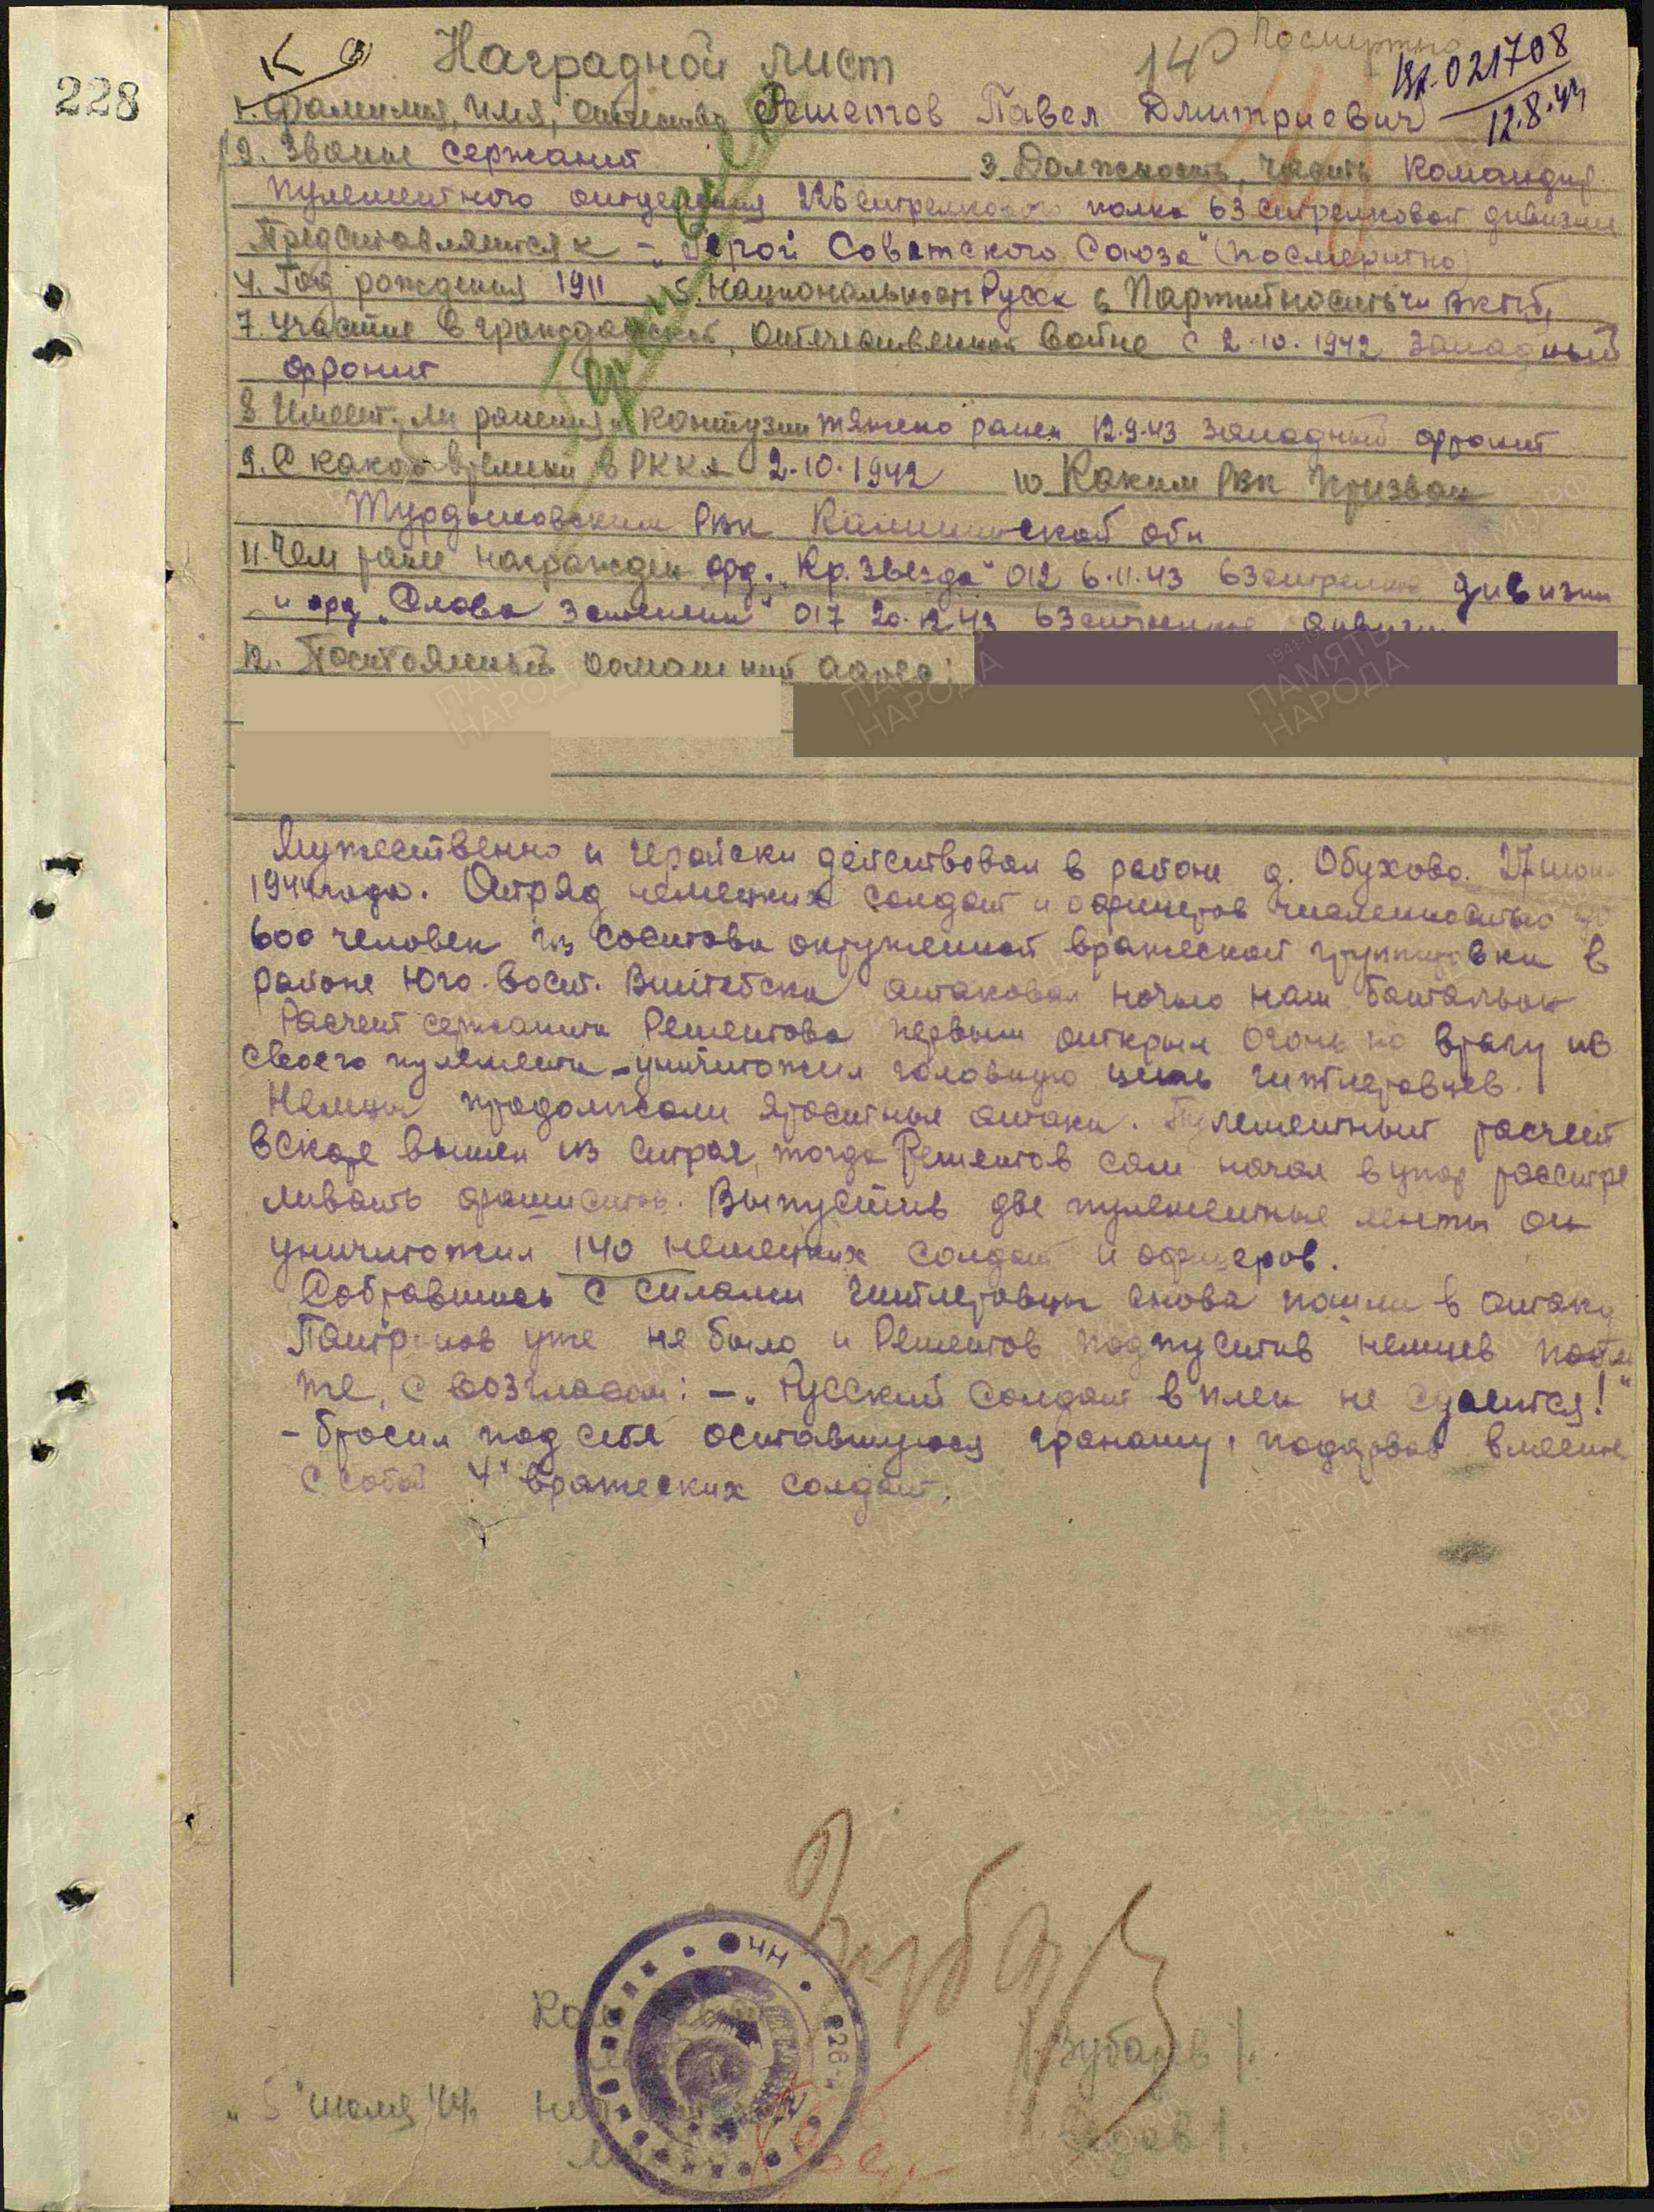 228
Наградной лист
140 Посмертно
Вх. 021708
12.8.44
1. Фамилия, имя, отчество Решетов Павел Дмитриевич
2. Звание сержант 3. Должность, часть Командир
пулеметного отделения 226 стрелкового полка 63 стрелковой дивизии
Представляется к - "Герой Советского Союза" (посмертно)
4. Год рождения 1911 5. Национальность Русск 6 Партийность чл ВКПб
7. Участие в гражданской, отечественной войне с 2-10.1942 Западный
фронт
8. Имеет ли ранения и контузии тяжело ранен 12.9.43 Западный фронт
9. С какого времени в РККА 2.10.1942 10 Каким РВК призван
РВК Калининской обл
11. Чем ранее награжден орд. "Кр. Звезда" 012 6.11.43 63 стрелков дивизии
и орд "Слава 3 степени" 017 20.12.43 63 дивизии
12. Постоянный домашний адрес:
Мужественно и геройски действовал в районе д. Обухово. 27 июня
1944 года. Отряд немецких солдат и офицеров численностью до
600 человек из состава окруженной вражеской группировки в
районе Юго-Вост. Витебска атаковал ночью наш батальон
Расчет сержанта Решетова первым открыл огонь по врагу из
своего пулемета - уничтожил головную цепь гитлеровцев.
Немцы продолжали яростные атаки. Пулеметный расчет
вскоре вышел из строя, тогда Решетов сам начал в упор расстре
ливать фашистов. Выпустив две пулеметные ленты он
уничтожил 140 немецких солдат и офицеров.
Собравшись с силами гитлеровцы снова пошли в атаку
Патронов уже не было и Решетов подпустив немцев побли
же, с возгласом: - "Русский солдат в плен не сдается!"
- бросил под себя оставшуюся гранату, подорвав вместе
с собой 4х вражеских солдат.
Зубарев
/Зубарев/.
"5" июля 44г.